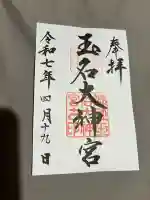 奉拝
玉石大神宮
令和七年四月十九日